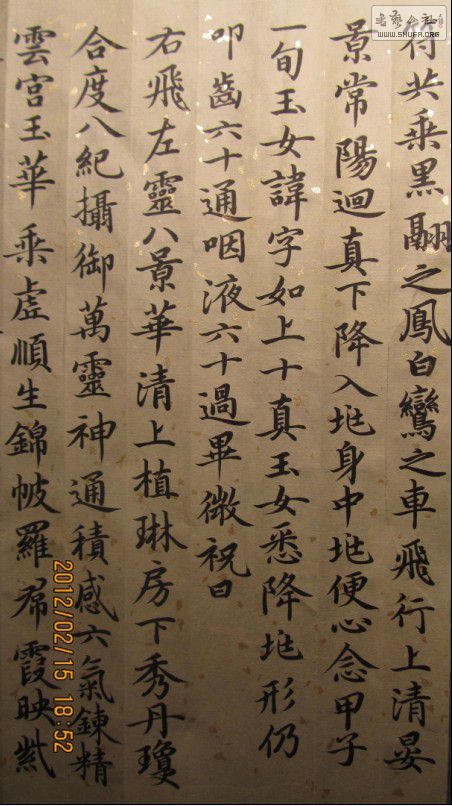 符共乗黒翮之鳳白鸞之車飛行上清晏
景常陽迴真下降入玼身中玼便心念甲子
一旬玉女諱字如上十真玉女悉降玼形仍
叩齒六十通咽液六十過畢微祝曰
右飛左靈八景華清上植琳房下秀丹瓊
合度八紀攝御萬靈神通積感六氣鍊精
雲宮玉華乗虛順生錦帔羅帬霞映紫
2012/02/15 18:52
书艺公社
WWW.SHUFA.ORG